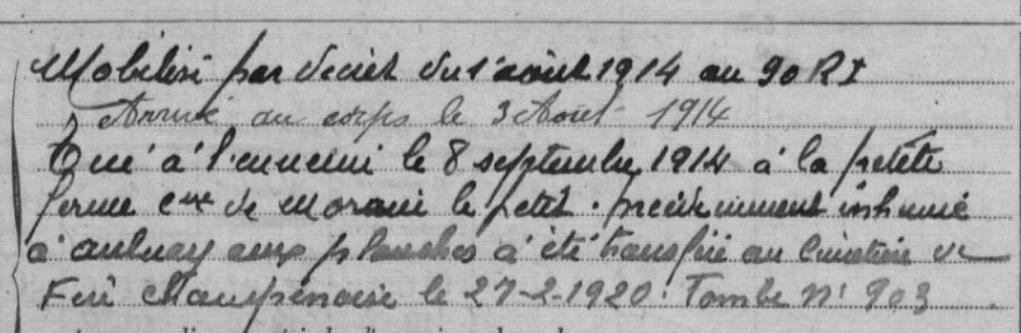 Mobilisé par décret du 1 août 1914 au 90 RI
Arrivé au corps le 3 Août 1914
Tué à l'ennemi le 8 septembre 1914 à la petite
ferme cne de Morains le petit. précédemment inhumé
à aulnay aux planches à été transféré au Cimetière de
Fère Champenoise le 27-2-1920. Tombe N° 903